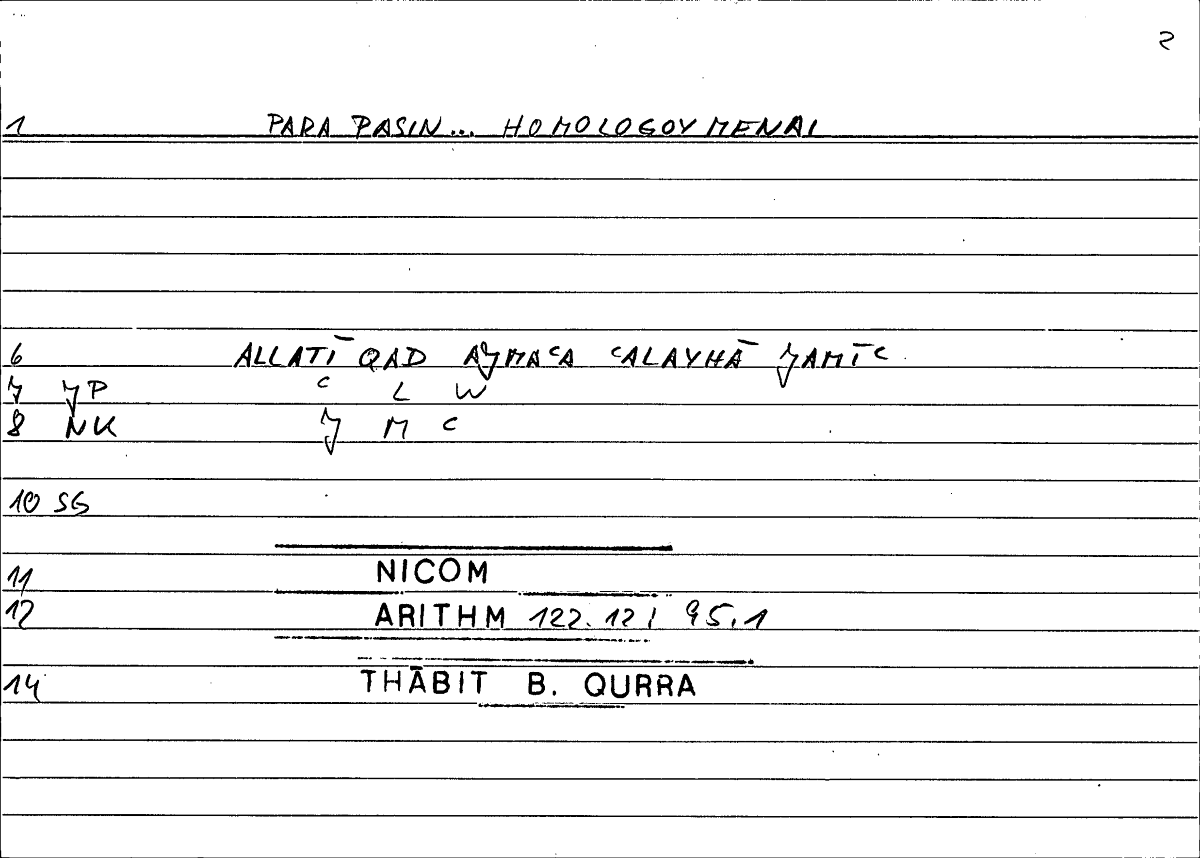 2
1 PARA PASIN... HOMOLOGOYMENAI
6 ALLATĪ QAD AJMAʿA ʿALAYHĀ JAMĪʿ
7 JP ʿ L W
8 NK J M ʿ
10 SG
11 NICOM
12 ARITHM 122.12 / 95.1
14 THĀBIT B. QURRA